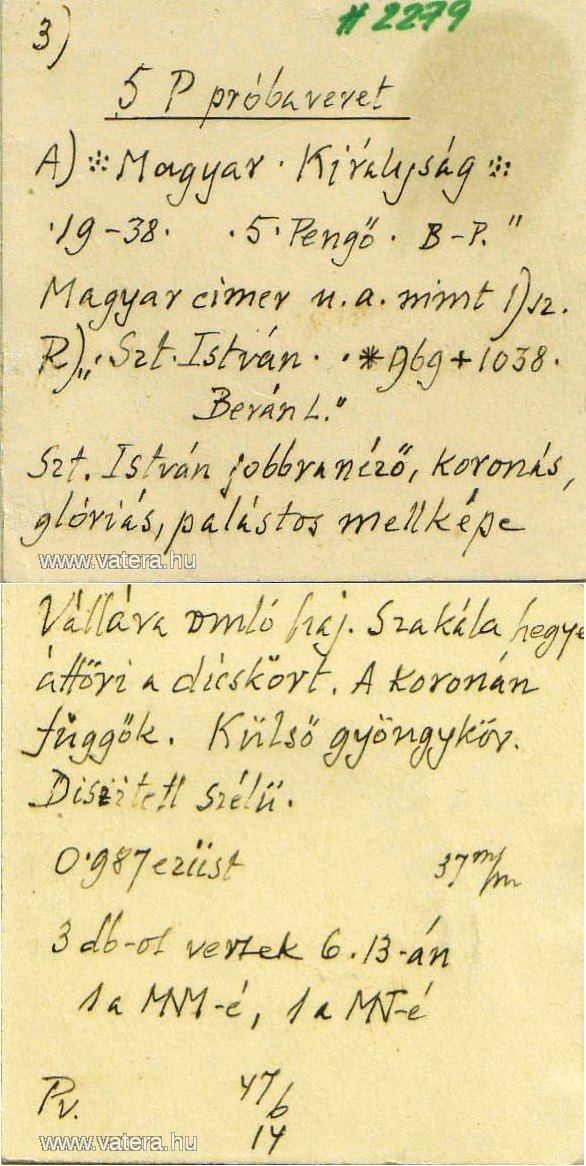 #2279
3)
5 P próbaveret
A) ⁘ Magyar · Királyság ⁘
·19-38· ·5·Pengő· B-P."
Magyar cimer u.a. mimt 1)sz.
R)„·Szt·István· ·✳969+1038·
Berán L."
Szt. István jobbranéző, koronás,
glóriás, palástos mellképe
www.vatera.hu
Vállára omló haj. Szakála hegye
áttöri a dicskört. A koronán
függők. Külső gyöngykör.
Diszitett szélű.
0·987 ezüst 37 m/m
3 db-ot vertek 6.13-án
1 a MNM-é, 1 a MN-é
Pv. 47/6
14
www.vatera.hu